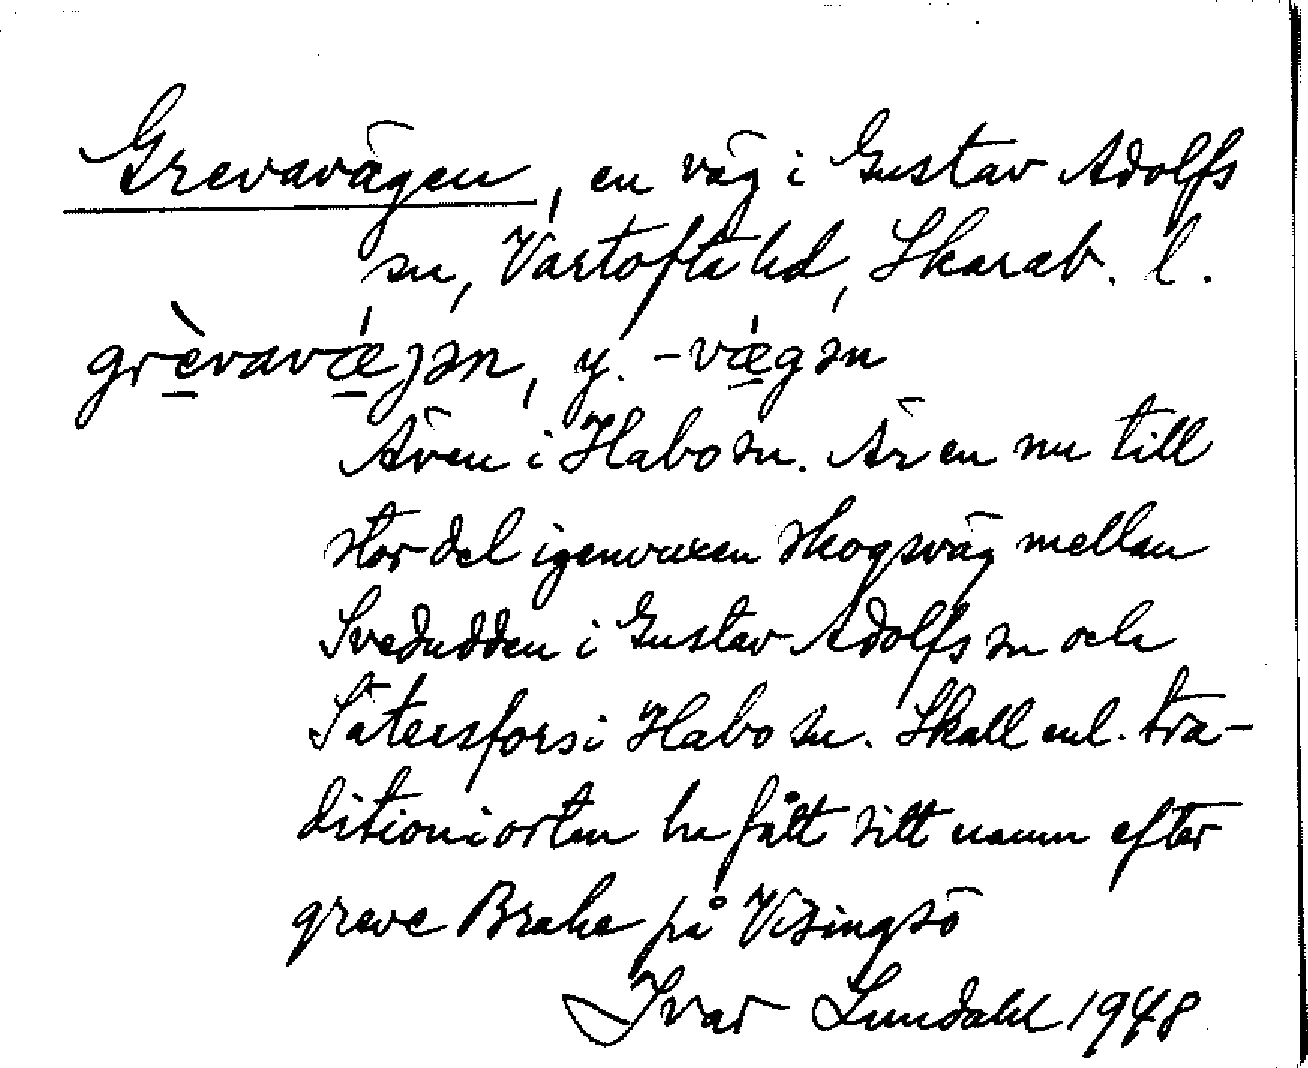 Grevavägen, en väg i Gustav Adolfs
sn, Vartofta hd, Skarab. l.
grèvavǽjən, y. -vǽgən
Även i Habo sn. Är en nu till
stor del igenvuxen skogsväg mellan
Svedudden i Gustav Adolfs sn och
Sätersfors i Habo sn. Skall enl. tra-
dition i orten ha fått sitt namn efter
greve Brahe på Visingsö
Ivar Lundahl 1948